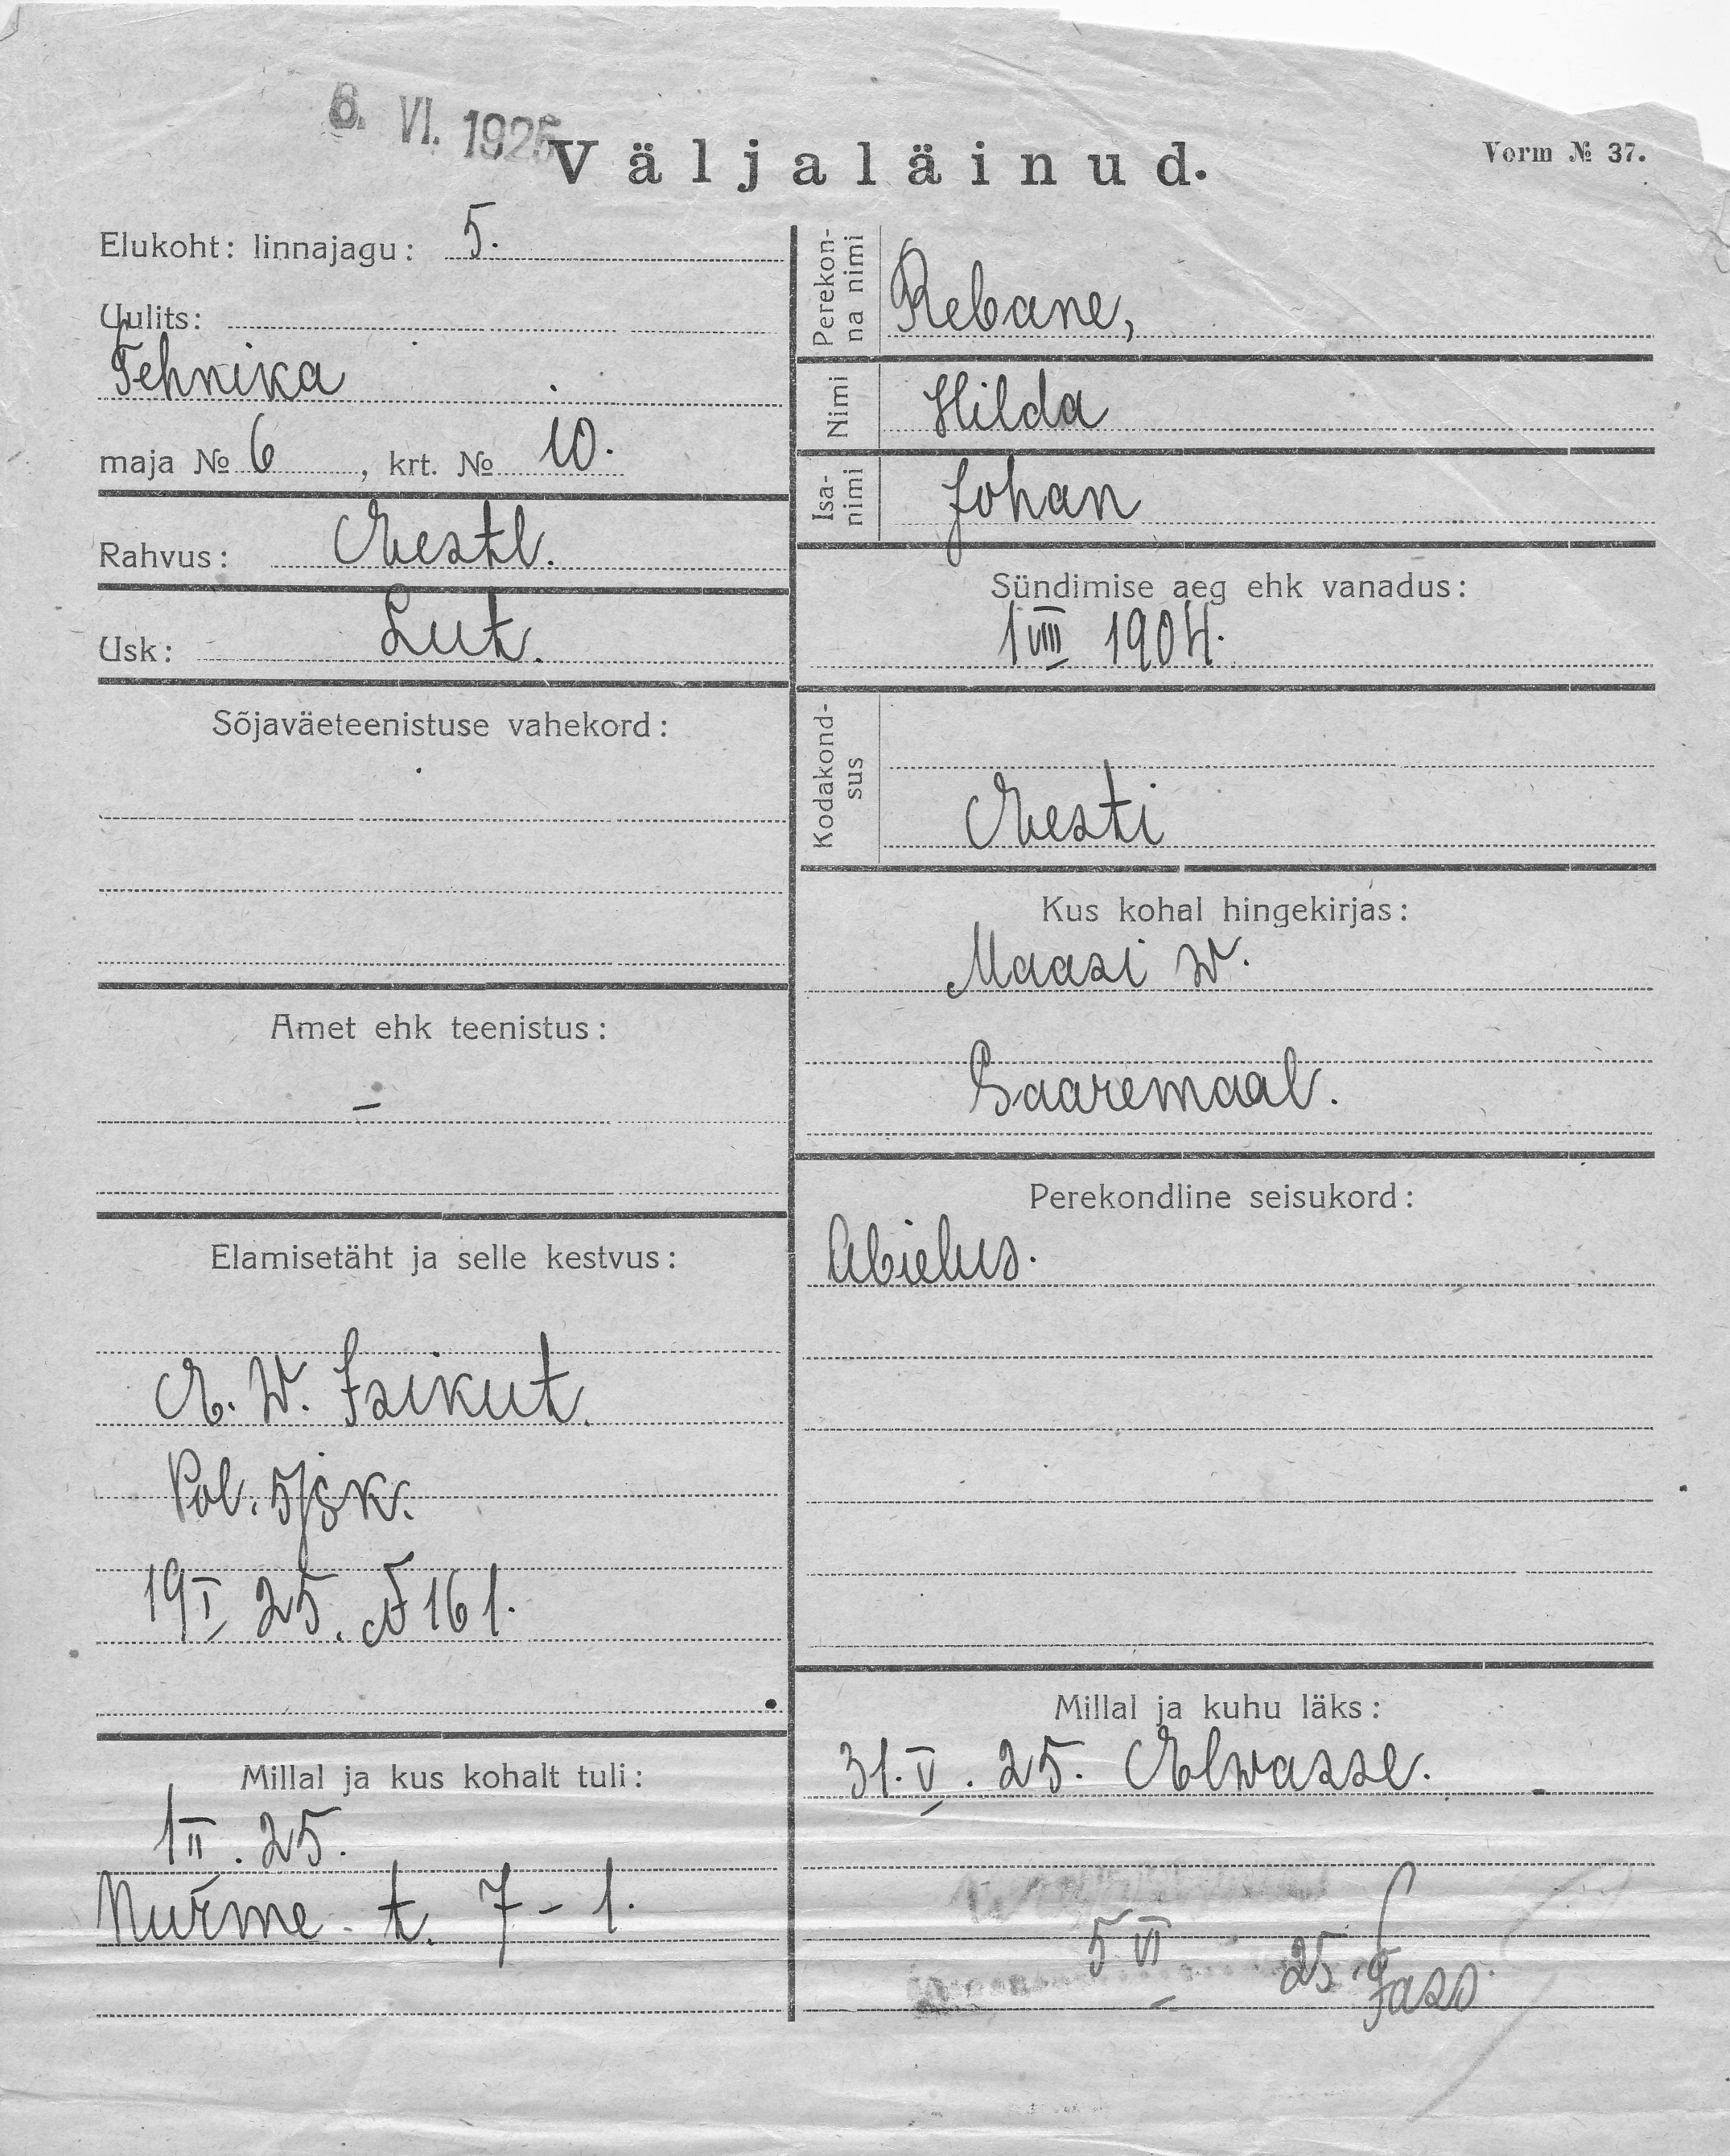 6. VI. 1925
Väljaläinud.
Vorm № 37.
Elukoht: linnajagu: 5.
Uulits:
Tehnika
maja № 6, krt. № 10.
Rahvus: Eestl.
Usk: Lut.
Sõjaväeteenistuse vahekord:
Amet ehk teenistus:
–
Elamisetäht ja selle kestvus:
E. W. Isikut.
Pol. 5/jsk.
19 I 25. № 161.
Millal ja kus kohalt tuli:
1 II. 25.
Nurme - t. 7 - 1.
Perekon-
na nimi
Rebane,
Nimi
Hilda
Isa-
nimi
Johan
Sündimise aeg ehk vanadus:
1 VIII 1904.
Kodakond-
sus
Eesti
Kus kohal hingekirjas:
Maasi w.
Saaremaal.
Perekondline seisukord:
Abielus.
Millal ja kuhu läks:
31. V. 25. Elwasse.
5 VI 25.